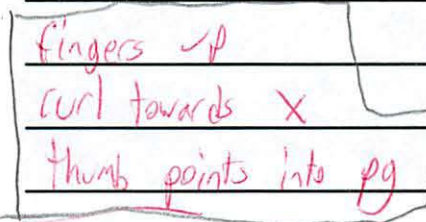 fingers up
curl towards X
thumb points into pg